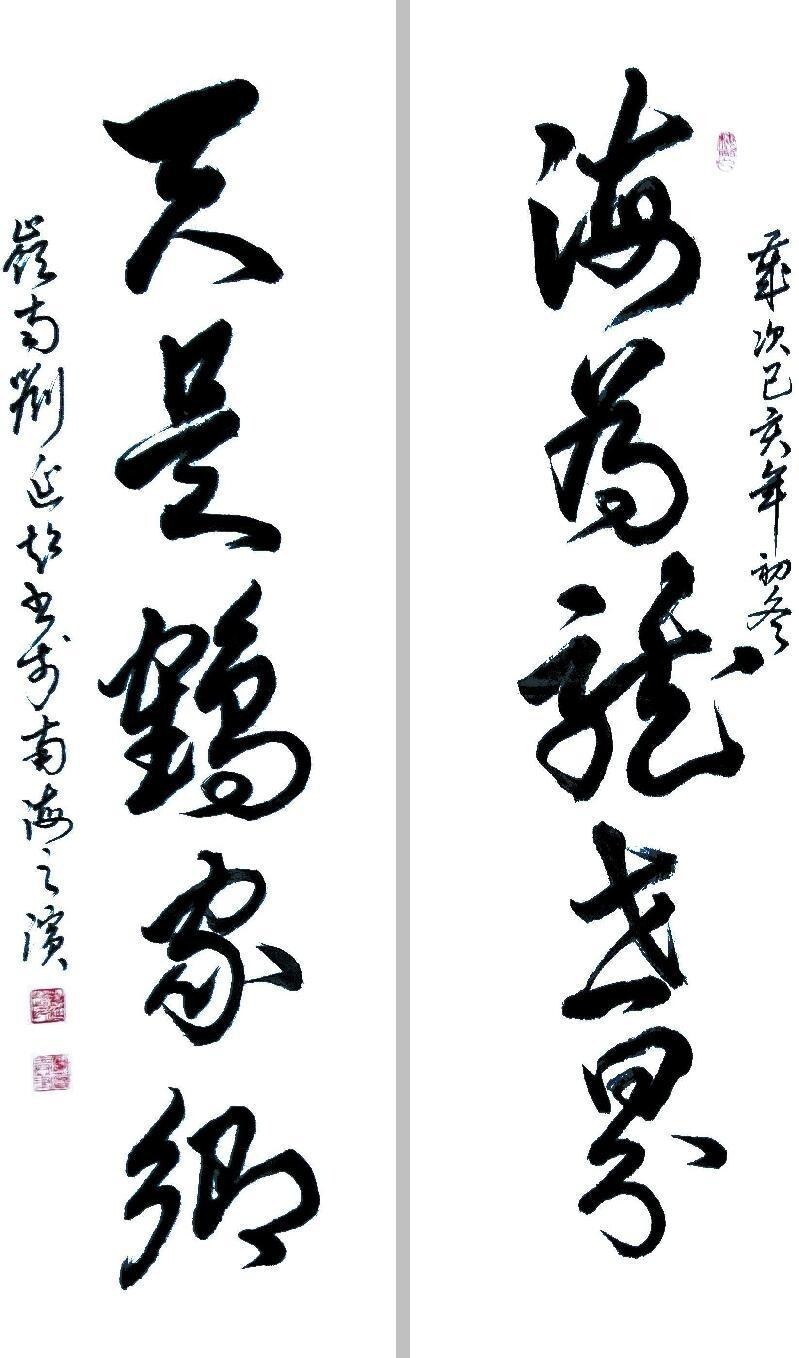 歲次己亥年初冬
海為龍世界
天是鶴家鄉
嶺南劉延超書於南海之濱